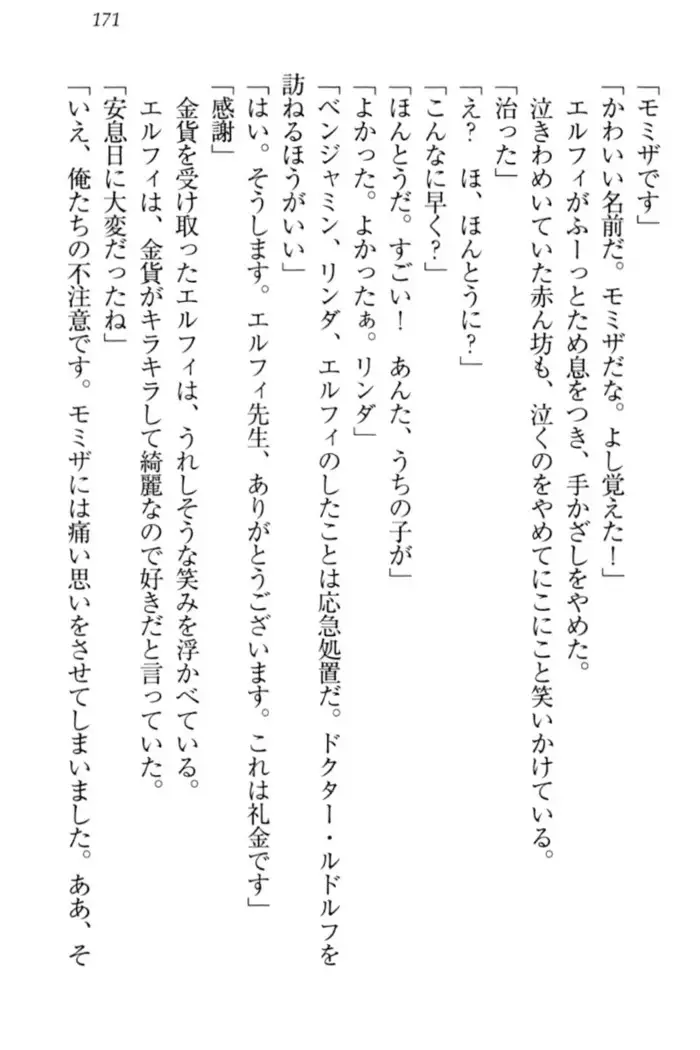 171
「モミザです」
「かわいい名前だ。モミザだな。よし覚えた！」
エルフィがふーっとため息をつき、手かざしをやめた。
泣きわめいていた赤ん坊も、泣くのをやめてにこにこと笑いかけている。
「治った」
「え？　ほ、ほんとうに？」
「こんなに早く？」
「ほんとうだ。すごい！　あんた、うちの子が」
「よかった。よかったぁ。リンダ」
「ベンジャミン、リンダ、エルフィのしたことは応急処置だ。ドクター・ルドルフを
訪ねるほうがいい」
「はい。そうします。エルフィ先生、ありがとうございます。これは礼金です」
「感謝」
金貨を受け取ったエルフィは、うれしそうな笑みを浮かべている。
エルフィは、金貨がキラキラして綺麗なので好きだと言っていた。
「安息日に大変だったね」
「いえ、俺たちの不注意です。モミザには痛い思いをさせてしまいました。ああ、そ